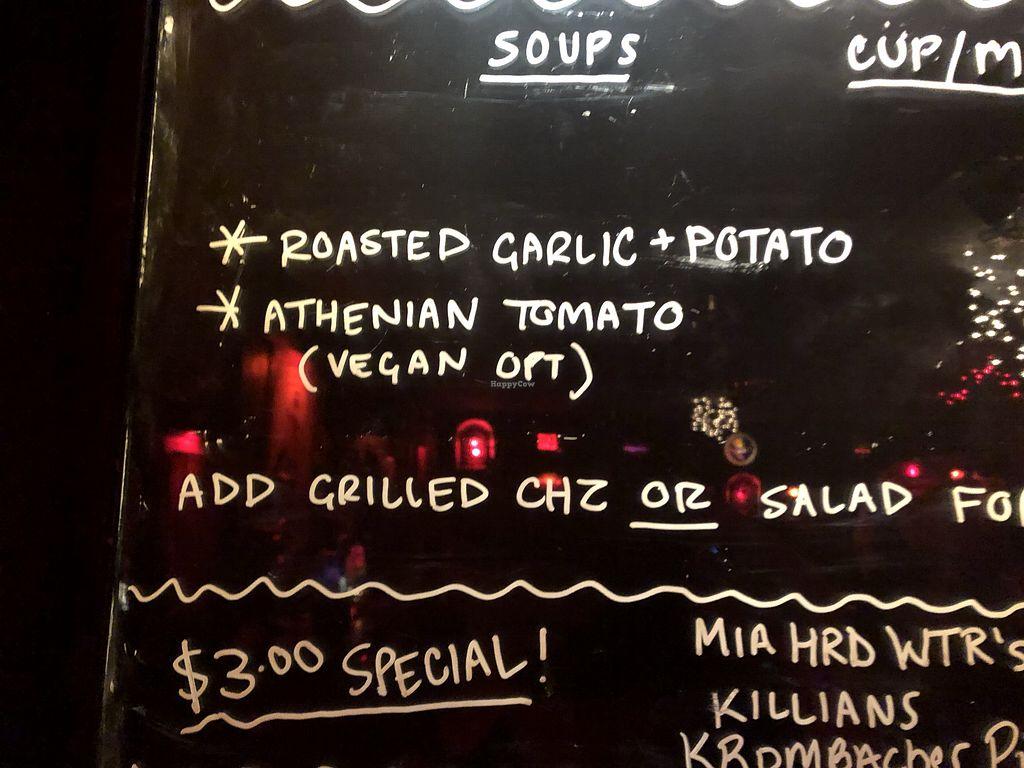 SOUPS CUP/M
* ROASTED GARLIC + POTATO
* ATHENIAN TOMATO
(VEGAN OPT)
HappyCow
ADD GRILLED CHZ OR SALAD FO
$3.00 SPECIAL!
MIA HRD WTR'S
KILLIANS
KROMBACHER P